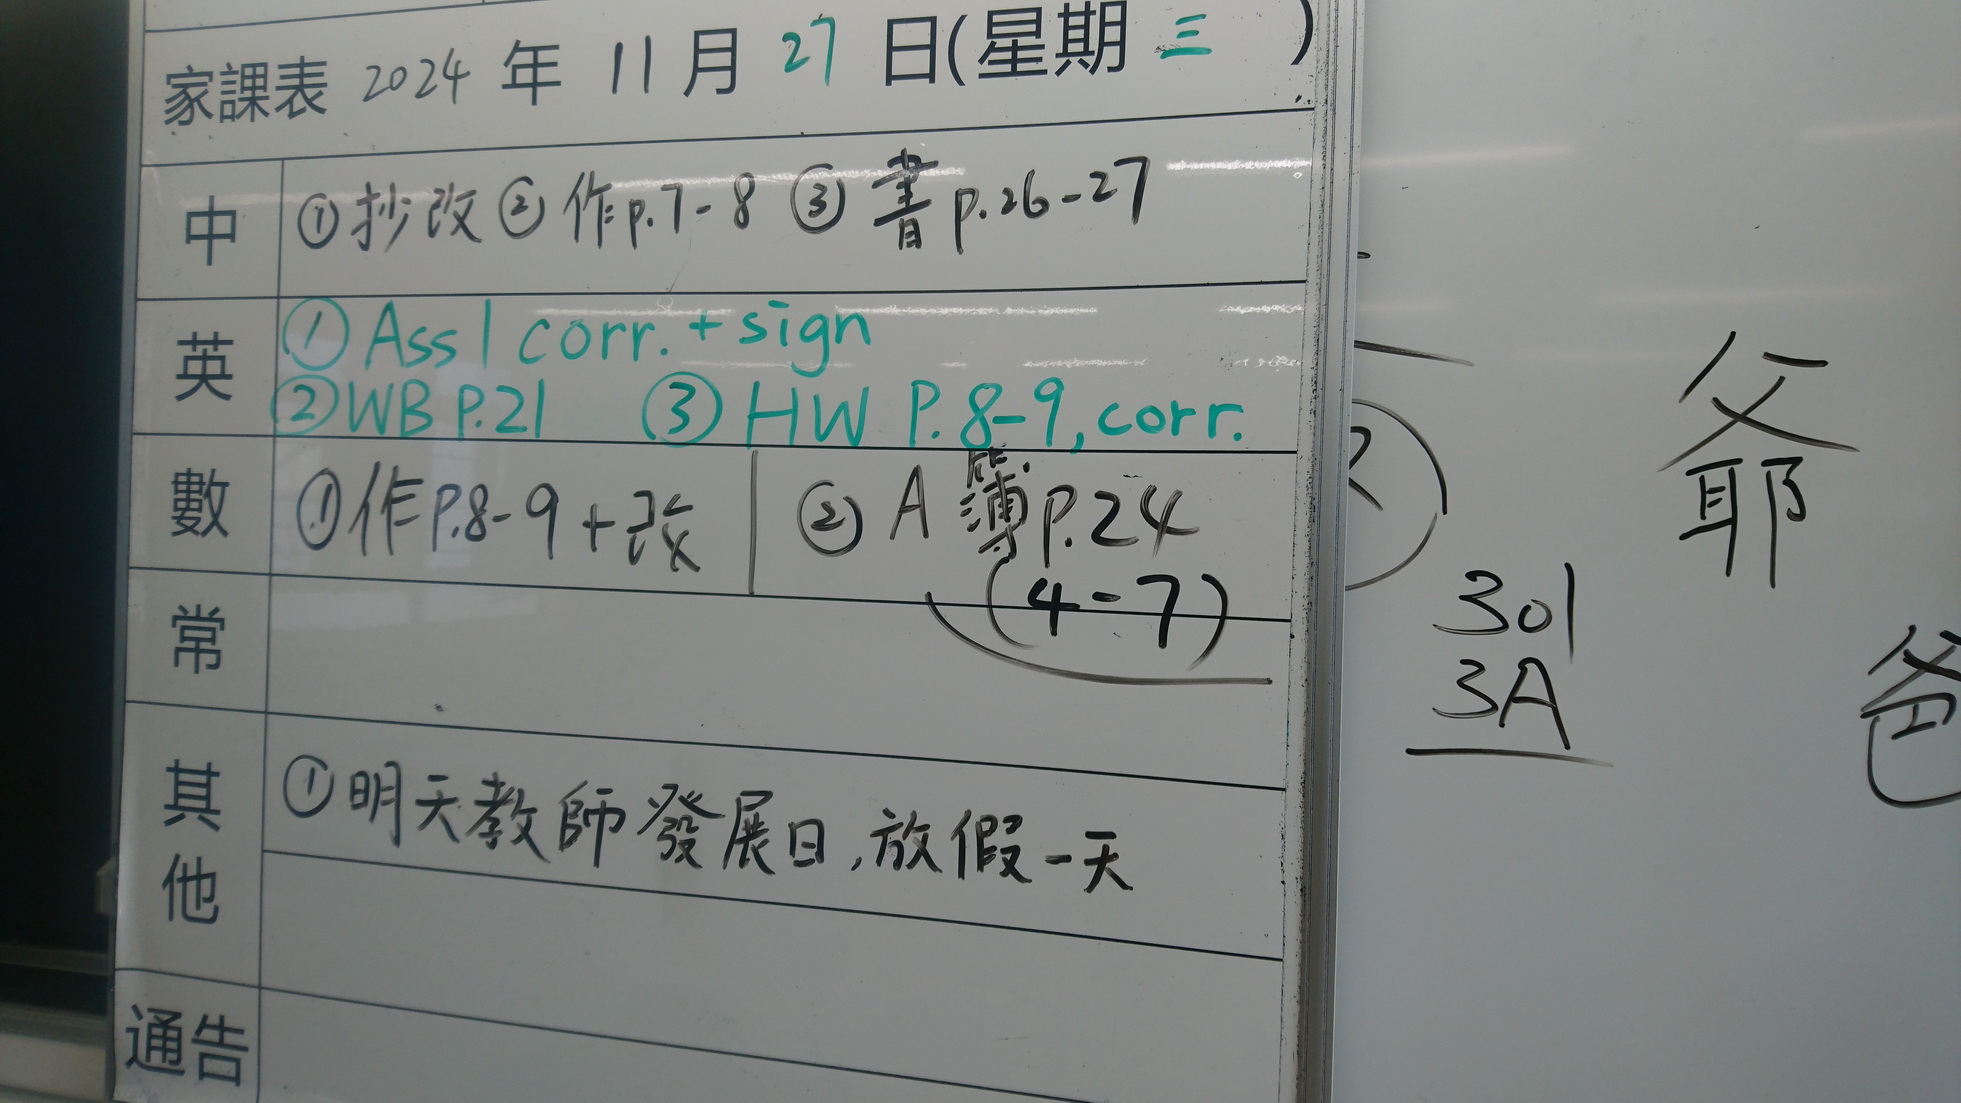 家課表 2024 年 11 月 27 日(星期 三 )
中 ①抄改 ②作p.7-8 ③書p.26-27
英 ①Ass 1 corr. + sign
②WB P.21 ③HW P.8-9, corr.
數 ①作P.8-9+改 ②A簿p.24
(4-7)
常
其他 ①明天教師發展日,放假一天
通告
爺
301
3A
爸